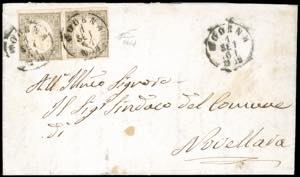 MODENA
1
SET
MODENA
1
SET
MODENA
1
SET
All' Illmo Signore
Il Sigr Sindaco del Comune
di
Novellara